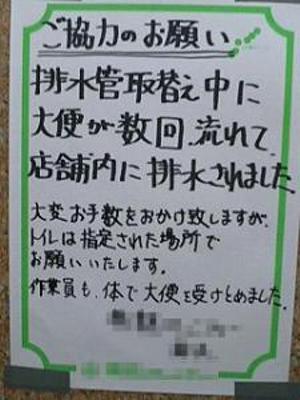 ご協力のお願い
排水管取替え中に
大便が数回、流れて、
店舗内に排水されました。
大変お手数をおかけ致しますが、
トイレは指定された場所で
お願いいたします。
作業員も、体で大便を受けとめました。